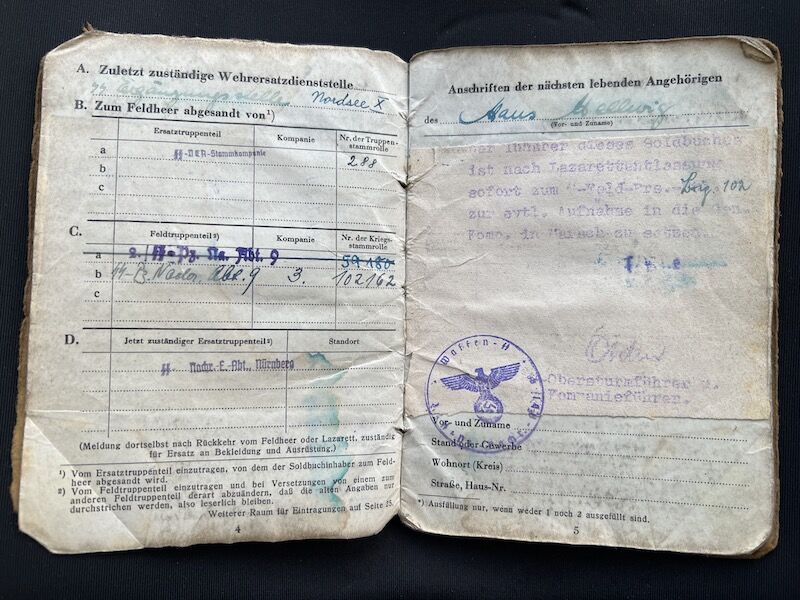 A. Zuletzt zuständige Wehrersatzdienststelle
Nordsee X
B. Zum Feldheer abgesandt von¹)
Ersatztruppenteil Kompanie Nr. der Truppen-
stammrolle
a ᛋᛋ-DER-Stammkompanie 288
b
c
C. Feldtruppenteil²) Kompanie Nr. der Kriegs-
stammrolle
a 2./ᛋᛋ-Pz. Na. Abt. 9 59 180
b ᛋᛋ-Pz. Nachr. Abt. 9 3. 102162
c
D. Jetzt zuständiger Ersatztruppenteil²) Standort
ᛋᛋ Nachr.-E.-Abt., Nürnberg
(Meldung dortselbst nach Rückkehr vom Feldheer oder Lazarett, zuständig
für Ersatz an Bekleidung und Ausrüstung.)
¹) Vom Ersatztruppenteil einzutragen, von dem der Soldbuchinhaber zum Feld-
heer abgesandt wird.
²) Vom Feldtruppenteil einzutragen und bei Versetzungen von einem zum
anderen Feldtruppenteil derart abzuändern, daß die alten Angaben nur
durchstrichen werden, also leserlich bleiben.
Weiterer Raum für Eintragungen auf Seite 25.
4
Anschriften der nächsten lebenden Angehörigen
des Hans
(Vor- und Zuname)
Inhaber dieses Soldbuches
ist nach Lazarettentlassung
sofort zum ᛋᛋ-Feld-Ers. Brig. 102
zur evtl. Aufnahme in die Gen.
Komp. in Marsch zu setzen.
Waffen-ᛋᛋ
Obersturmführer u.
Kompanieführer.
Vor- und Zuname
Stand oder Gewerbe
Wohnort (Kreis)
Straße, Haus-Nr.
*) Ausfüllung nur, wenn weder 1 noch 2 ausgefüllt sind.
5